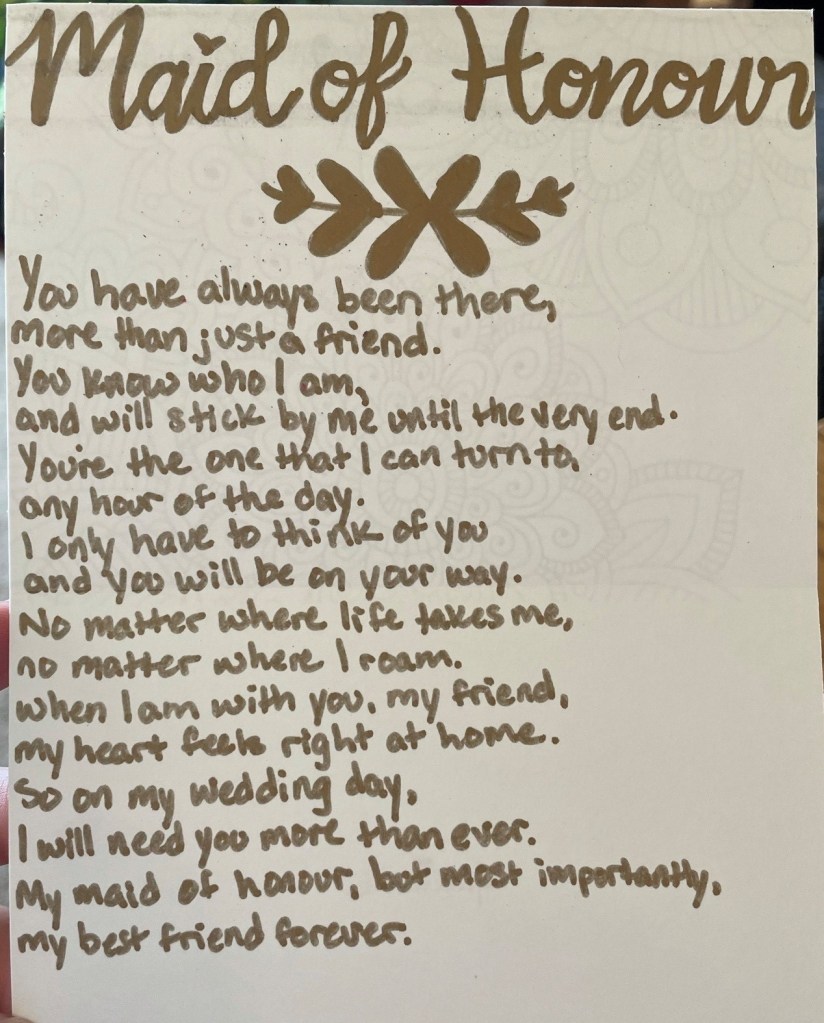 Maid of Honour
You have always been there,
more than just a friend.
You know who I am,
and will stick by me until the very end.
You're the one that I can turn to,
any hour of the day.
I only have to think of you
and you will be on your way.
No matter where life takes me,
no matter where I roam.
when I am with you, my friend,
my heart feels right at home.
So on my wedding day,
I will need you more than ever.
My maid of honour, but most importantly,
my best friend forever.